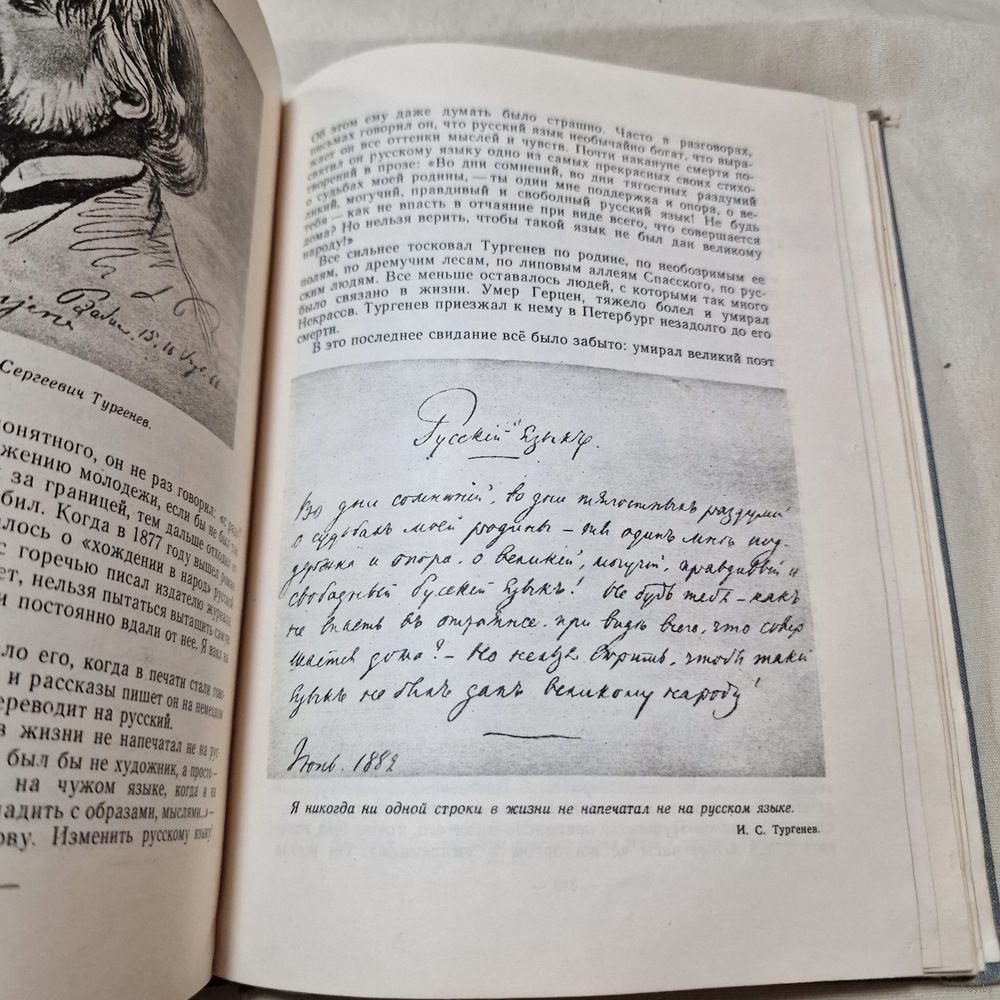 Сергеевич Тургенев.
понятного, он не раз говорил:
жению молодежи, если бы не был
за границей, тем дальше отходил
бил. Когда в 1877 году вышел роман
алось о «хождении в народ» русской
с горечью писал издателю журнала
ет, нельзя пытаться вытащить самую
и постоянно вдали от нее. Я взял на
ло его, когда в печати стали гово-
и рассказы пишет он на немецком
ереводит на русский.
в жизни не напечатал не на рус-
был бы не художник, а просто —
на чужом языке, когда и на
ладить с образами, мыслями..» —
ову. Изменить русскому языку!
Об этом ему даже думать было страшно. Часто в разговорах,
письмах говорил он, что русский язык необычайно богат, что выра-
жает он все оттенки мыслей и чувств. Почти накануне смерти по-
святил он русскому языку одно из самых прекрасных своих стихо-
творений в прозе: «Во дни сомнений, во дни тягостных раздумий
о судьбах моей родины, — ты один мне поддержка и опора, о ве-
ликий, могучий, правдивый и свободный русский язык! Не будь
тебя — как не впасть в отчаяние при виде всего, что совершается
дома? Но нельзя верить, чтобы такой язык не был дан великому
народу!»
Все сильнее тосковал Тургенев по родине, по необозримым ее
полям, по дремучим лесам, по липовым аллеям Спасского, по рус-
ским людям. Все меньше оставалось людей, с которыми так много
было связано в жизни. Умер Герцен, тяжело болел и умирал
Некрасов. Тургенев приезжал к нему в Петербург незадолго до его
смерти.
В это последнее свидание всё было забыто: умирал великий поэт
Русскій Языкъ.
Во дни сомнѣній, во дни тягостныхъ раздумій
о судьбахъ моей родины – ты одинъ мнѣ под-
держка и опора, о великій, могучій, правдивый и
свободный Русскій Языкъ! Не будь тебя – какъ
не впасть въ отчаянье, при видѣ всего, что совер
шается дома? – Но нельзя вѣрить, чтобы такой
Языкъ не былъ данъ великому народу!
Іюнь. 1882
Я никогда ни одной строки в жизни не напечатал не на русском языке.
И. С. Тургенев.